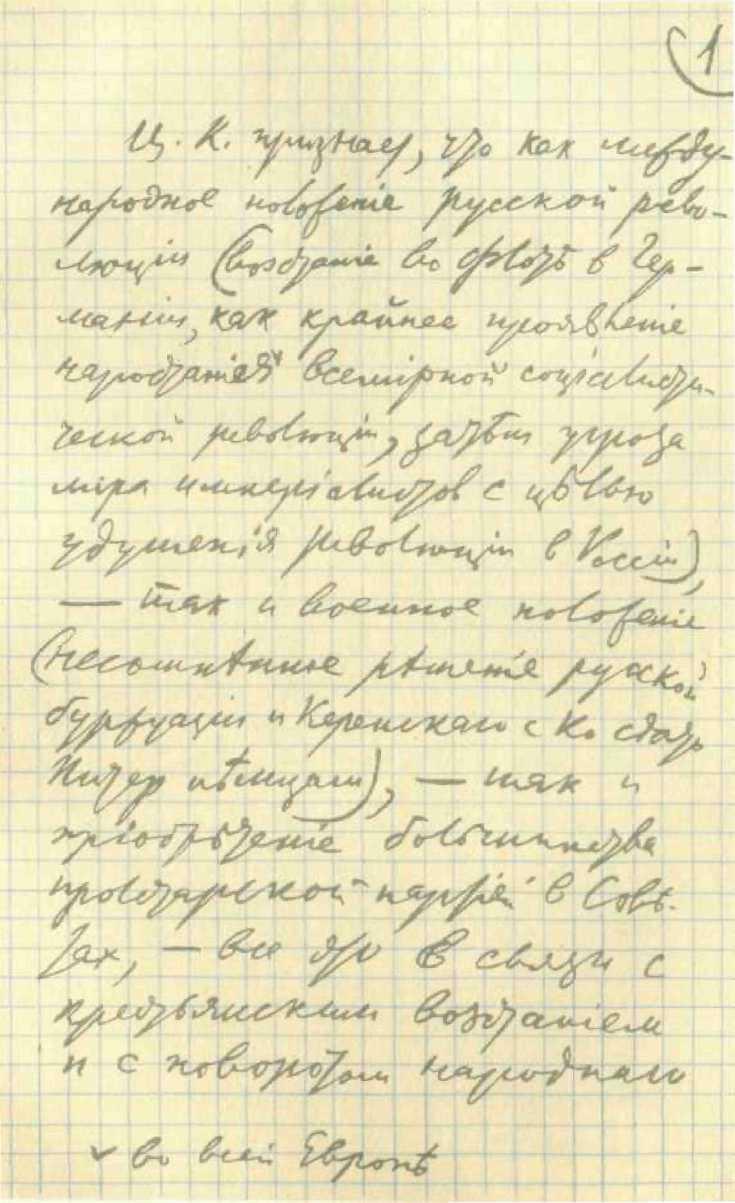 1
Ц. К. признает, что как между-
народное положение русской рево-
люции (восстание во флоте в Гер-
мании, как крайнее проявление
нарастания v всемирной социалисти-
ческой революции, затем угроза
мира империалистов с целью
удушения революции в России),
— так и военное положение
(несомненное решение русской
буржуазии и Керенского с Ко сдать
Питер немцам), — так и
приобретение большинства
пролетарской партией в Сове-
тах, — все это в связи с
крестьянским восстанием
и с поворотом народного
v во всей Европе